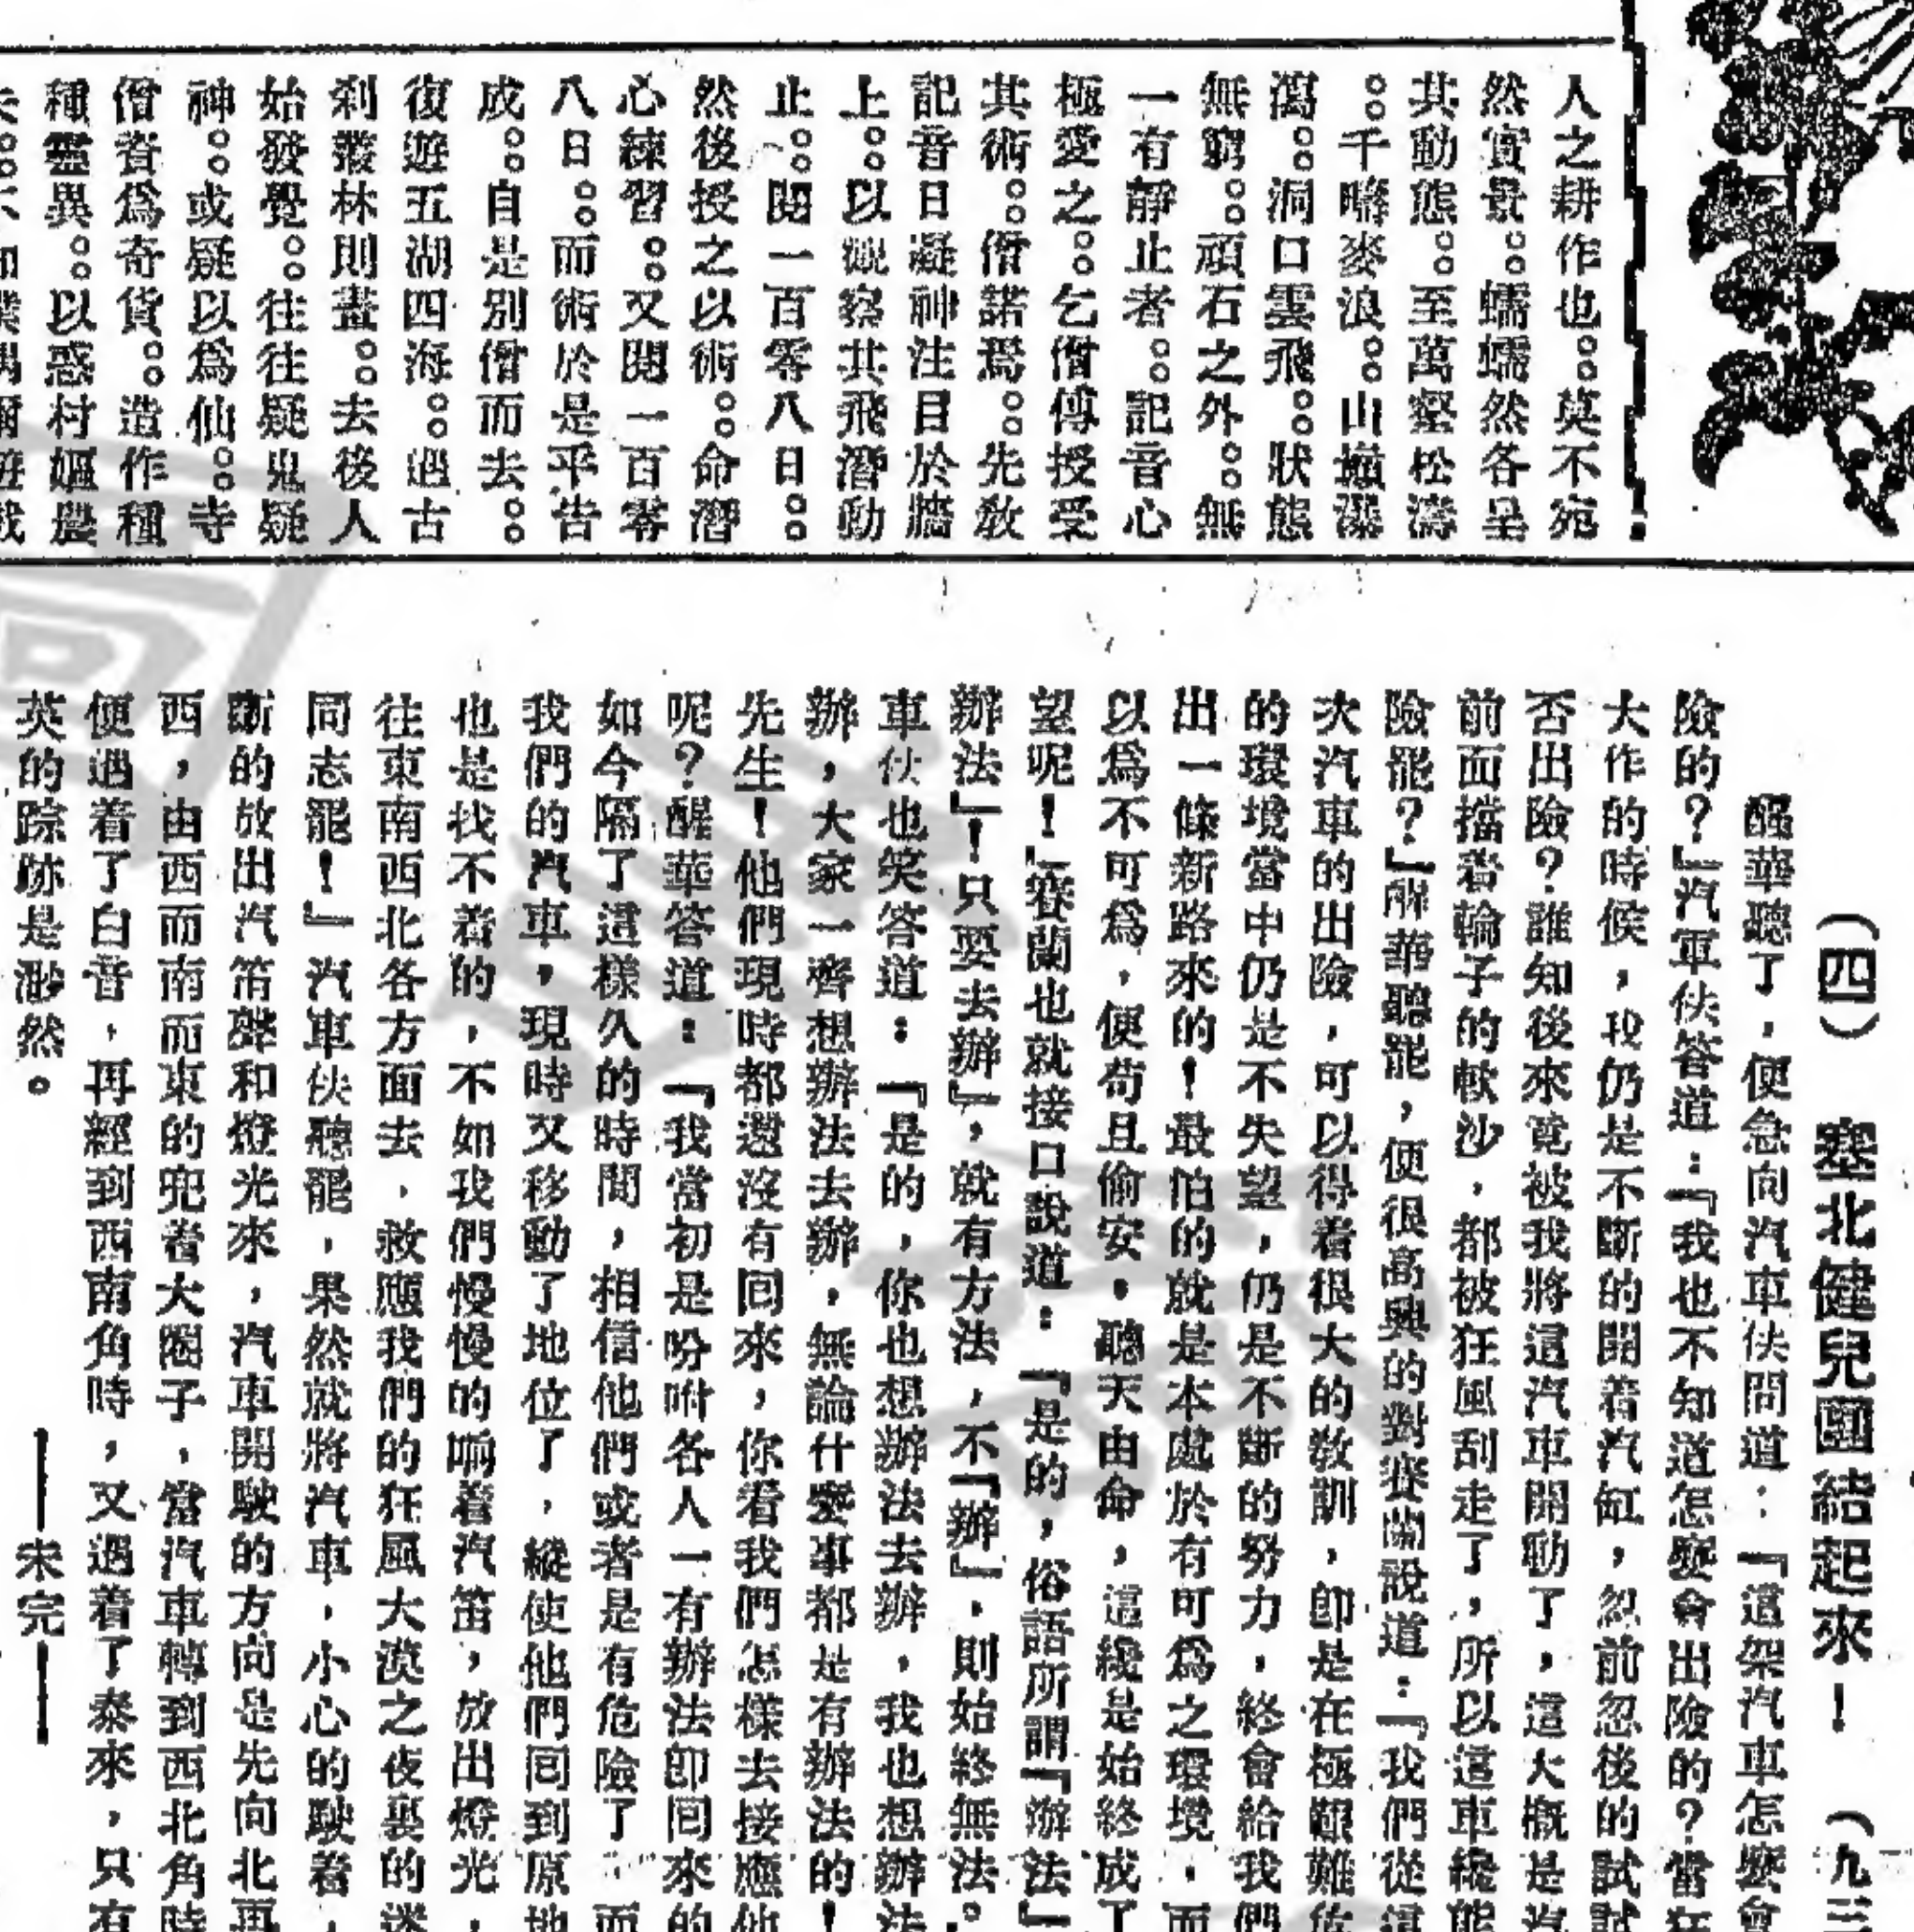 人之耕作也。。莫不宛
然實景。。蠕蠕然各呈
其動態。。至萬壑松濤
。。千疇麥浪。。山巔瀑
瀉。。洞口雲飛。。狀態
無窮。。頑石之外。。無
一有靜止者。。記音心
極愛之。。乞僧傳授受
其術。。僧諾焉。。先敎
記音日凝神注目於牆
上。。以觀察其飛潛動
止。。閱一百零八日。。
然後授之以術。。命潛
心練習。。又閱一百零
八日。。而術於是乎告
成。。自是別僧而去。。
復遊五湖四海。。遇古
刹叢林則畫。。去後人
始發覺。。往往疑鬼疑
神。。或疑以爲仙。。寺
僧資爲奇貨。。造作種
種靈異。。以惑村嫗農
夫。。不知
(四) 塞北健兒團結起來! (九三
醒華聽了,便急向汽車伕問道:『這架汽車怎麽會
險的?』汽車伕答道:『我也不知道怎麽會出險的?當狂
大作的時候,我仍是不斷的開着汽缸,忽前忽後的試試
否出險?誰知後來竟被我將這汽車開動了,這大概是汽
前面擋着輪子的軟沙,都被狂風刮走了,所以這車纔能
險罷?』醒華聽罷,便很高興的對賽蘭說道:『我們從這
次汽車的出險,可以得着很大的敎訓,卽是在極艱難
的環境當中仍是不失望,仍是不斷的努力,終會給我們
出一條新路來的!最怕的就是本處於有可爲之環境,而
以爲不可爲,便苟且偷安,聽天由命,這纔是始終成了
望呢!』賽蘭也就接口說道:『是的,俗語所謂『辦法』
辦法』!只要去辦』,就有方法,不『辦』,則始終無法。
車伕也笑答道:『是的,你也想辦法去辦,我也想辦法
辦,大家一齊想辦法去辦,無論什麽事都是有辦法的!
先生!他們現時都還沒有回來,你看我們怎樣去接應他
呢?醒華答道:『我當初是吩咐各人一有辦法卽回來的
如今隔了這樣久的時間,相信他們或者是有危險了,而
我們的汽車,現時又移動了地位了,縱使他們回到原地
也是找不着的,不如我們慢慢的嗚着汽笛,放出燈光,
往東南西北各方面去,救應我們的狂風大漠之夜裏的迷
同志罷!』汽車伕聽罷,果然就將汽車,小心的駛着,
斷的放出汽笛聲和燈光來,汽車開駛的方向是先向北再
西,由西而南而東的兜着大圈子,當汽車轉到西北角時
便遇着了白音,再經到西南角時,又遇着了泰來,只有
英的踪跡是渺然。
——未完——